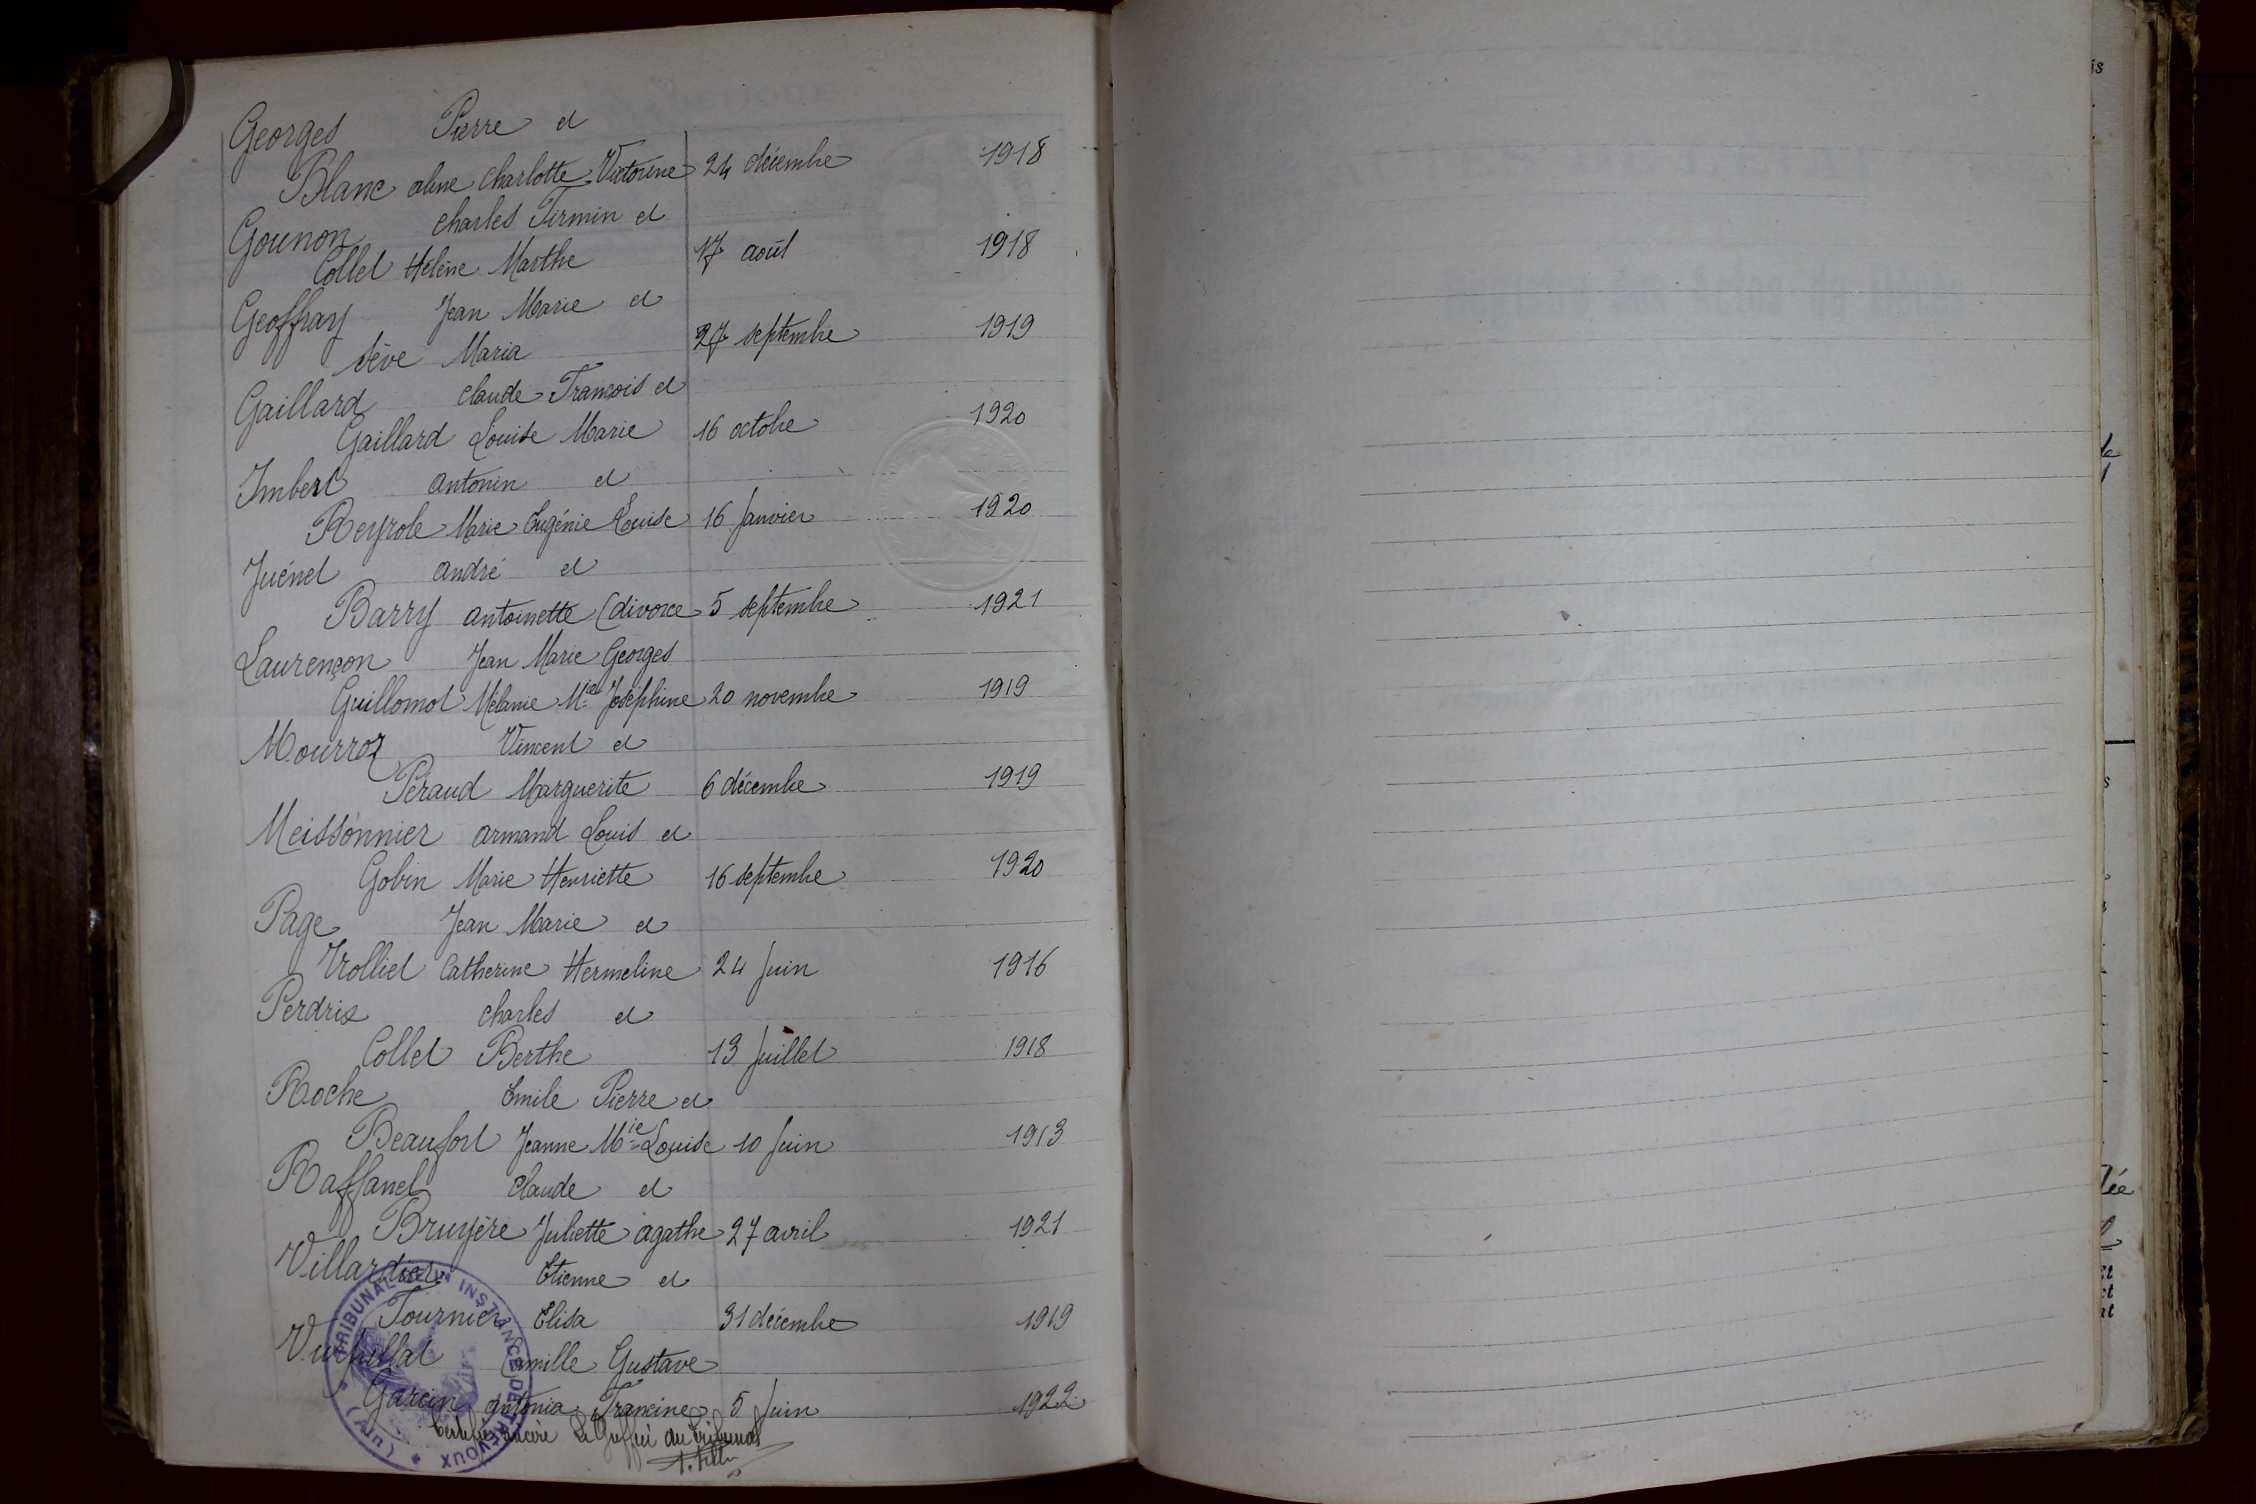 Georges Pierre et
Blanc Aline Charlotte Victorine 24 décembre 1918
Gounon Charles Firmin et
Collet Hélène Marthe 17 août 1918
Geoffray Jean Marie et
Sève Maria 27 septembre 1919
Gaillard Claude François et
Gaillard Louise Marie 16 octobre 1920
Imbert Antonin et
Reyrole Marie Eugénie Louise 16 Janvier 1920
Juénet André et
Barry Antoinette (divorce 5 septembre 1921
Laurençon Jean Marie Georges
Guillomot Mélanie Mie Joséphine 20 novembre 1919
Mourroz Vincent et
Péraud Marguerite 6 décembre 1919
Meissonnier Armand Louis et
Gobin Marie Henriette 16 septembre 1920
Page Jean Marie et
Trolliet Catherine Hermeline 24 Juin 1916
Perdrix Charles et
Collet Berthe 13 Juillet 1918
Roche Emile Pierre et
Beaufort Jeanne Mie Louise 10 Juin 1913
Raffanel Claude et
Bruyère Juliette Agathe 27 avril 1921
Villardier Etienne et
Tournier Elisa 31 décembre 1919
Camille Gustave
Garcin Antonia Francine 5 Juin 1922
Certifié sincère Le Greffier du Tribunal
TRIBUNAL INSTANCE DE TREVOUX
(Ain)